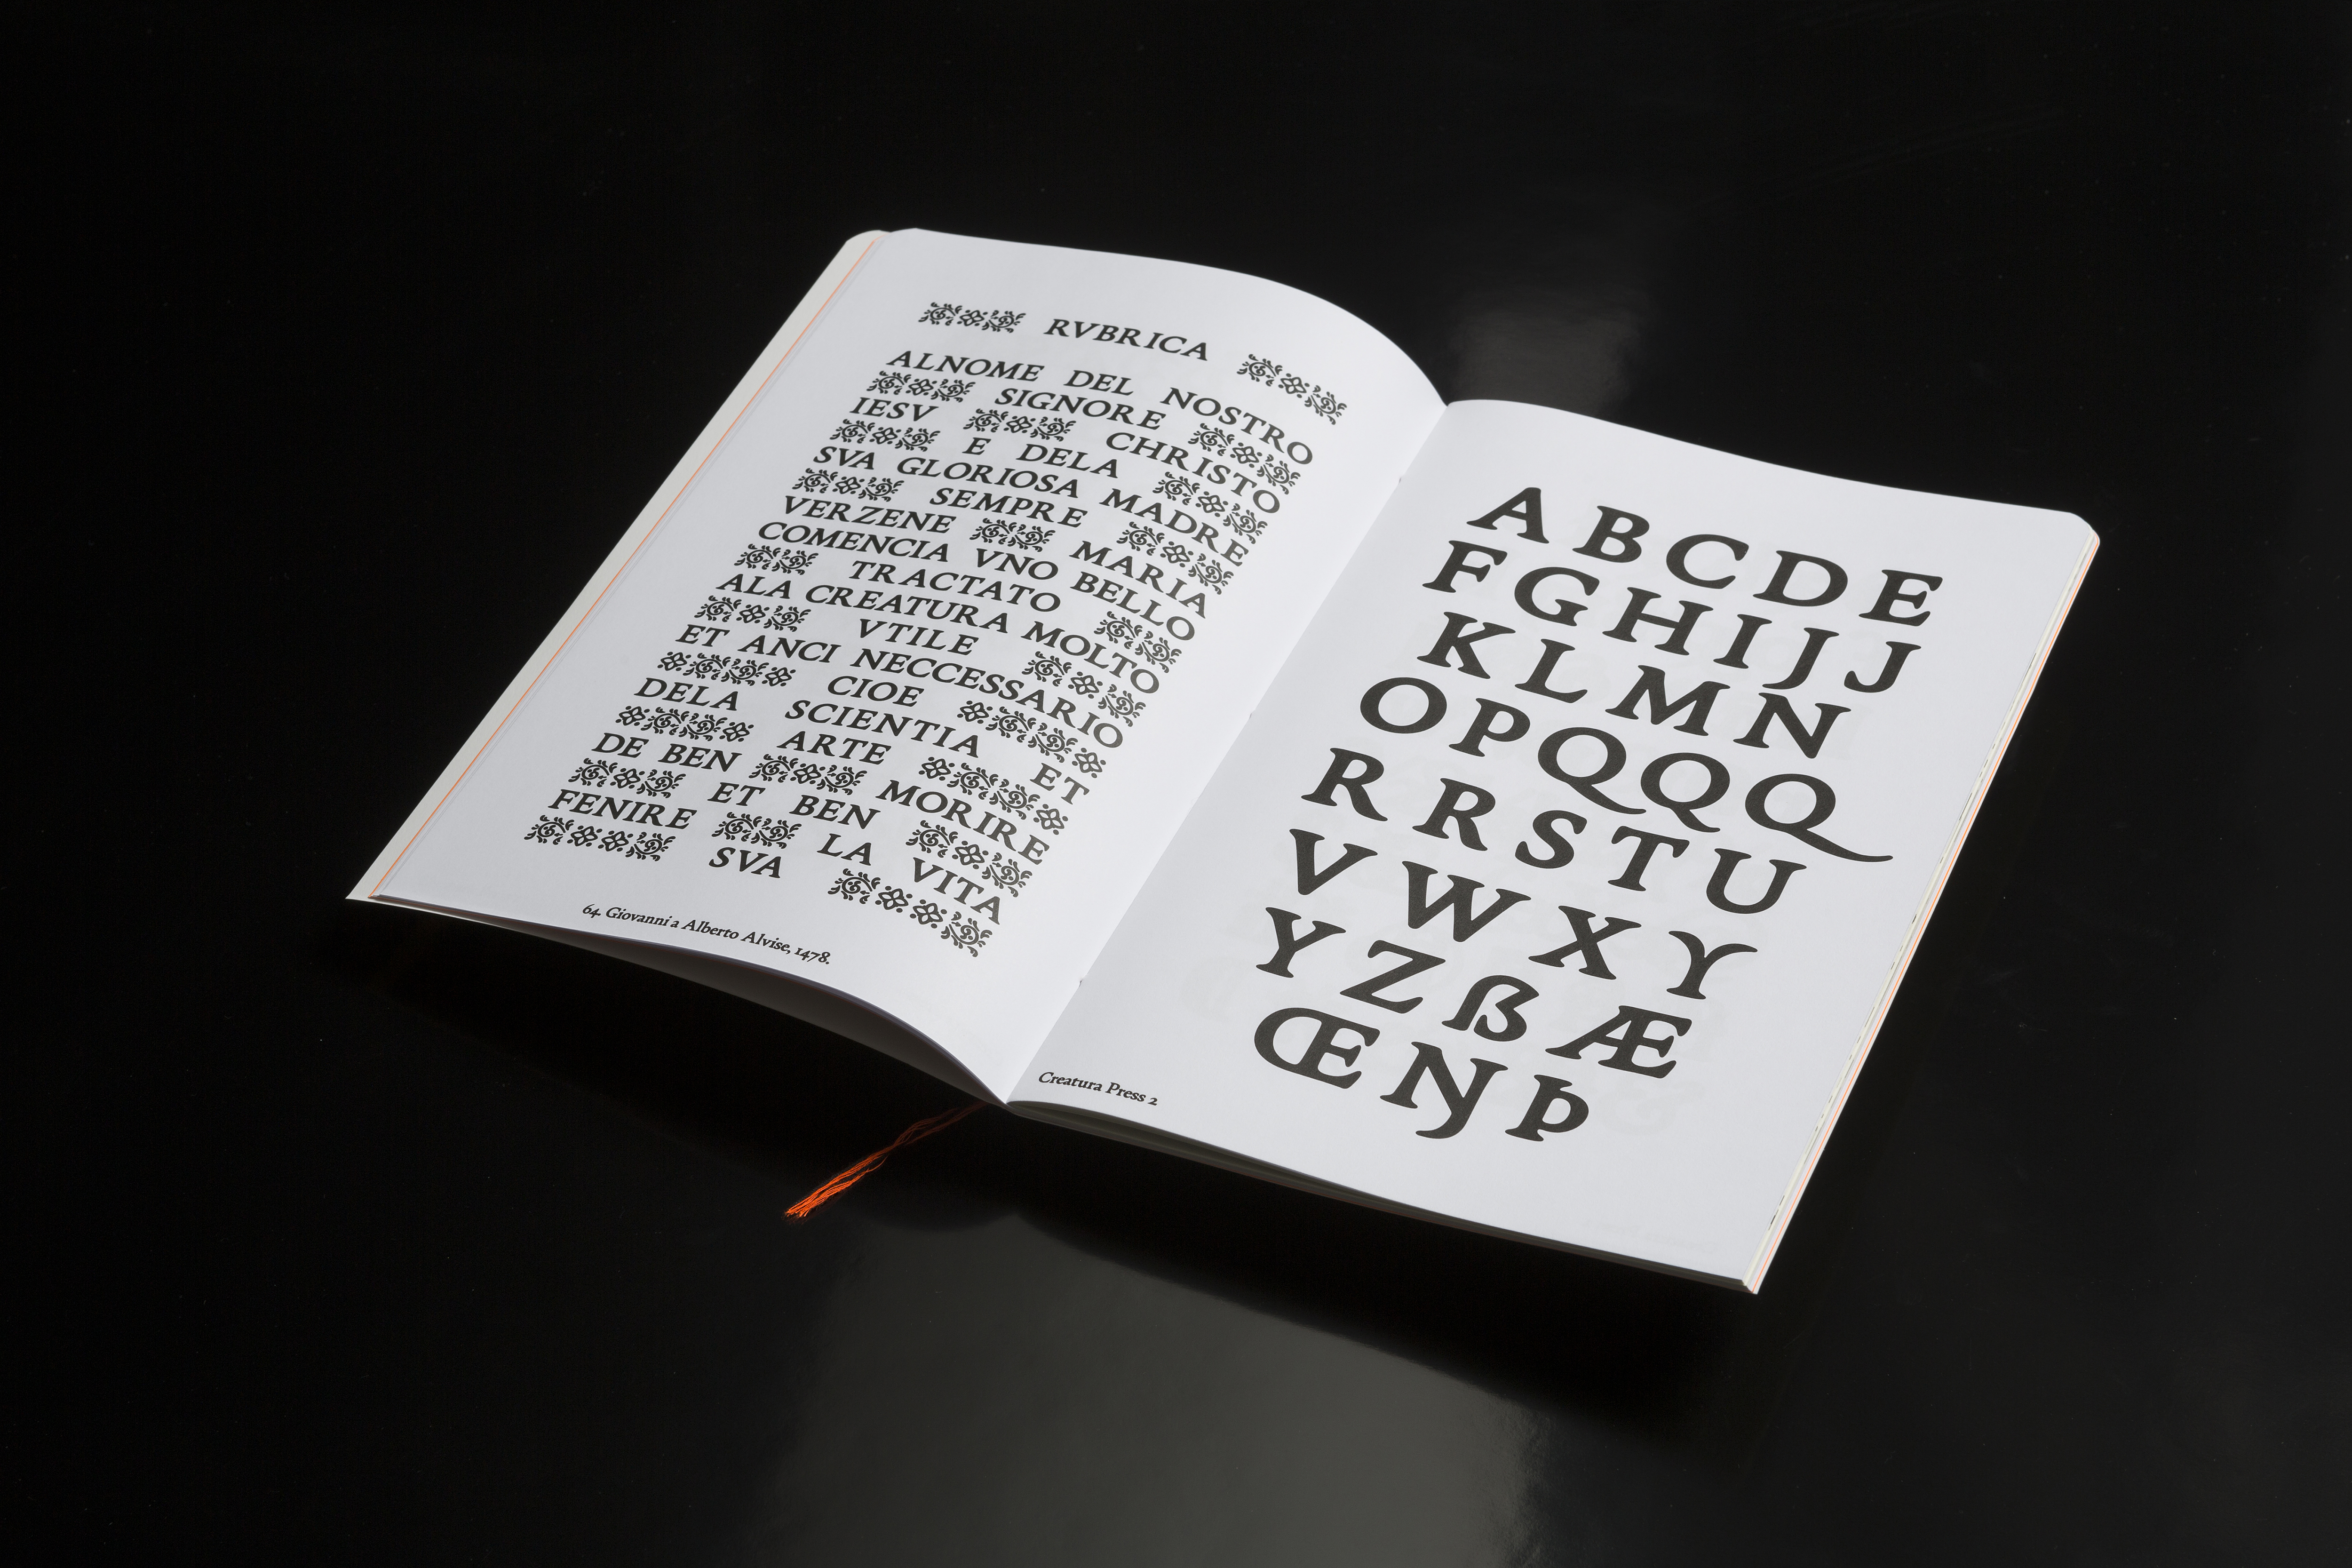 RVBRICA
ALNOME DEL NOSTRO
SIGNORE
IESV CHRISTO
E DELA
SVA GLORIOSA MADRE
SEMPRE
VERZENE MARIA
COMENCIA VNO BELLO
TRACTATO
ALA CREATURA MOLTO
VTILE
ET ANCI NECCESSARIO
CIOE
DELA SCIENTIA ET
ARTE
DE BEN MORIRE
ET BEN
FENIRE LA VITA
SVA
64 Giovanni a Alberto Alvise, 1478.
A B C D E
F G H I J J
K L M N
O P Q Q Q
R R S T U
V W X Y
Y Z ẞ Æ
Œ Ŋ Þ
Creatura Press 2